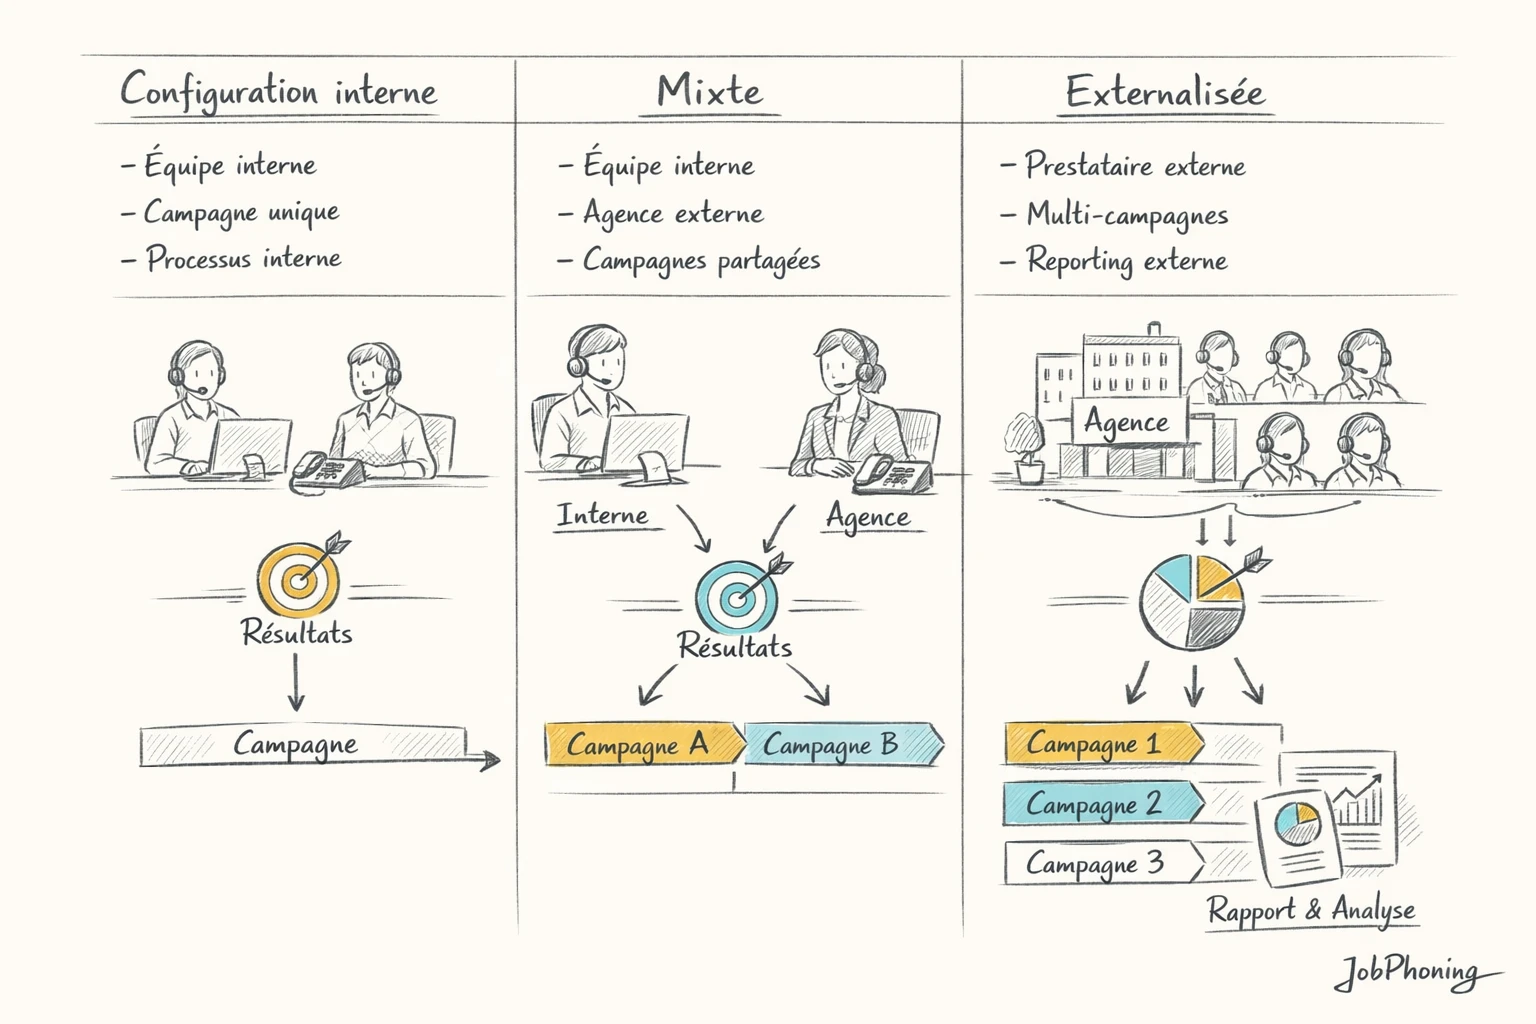 Configuration interne
– Équipe interne
– Campagne unique
– Processus interne
Résultats
Campagne
Mixte
– Équipe interne
– Agence externe
– Campagnes partagées
Interne
Agence
Résultats
Campagne A
Campagne B
Externalisée
– Prestataire externe
– Multi-campagnes
– Reporting externe
Agence
Campagne 1
Campagne 2
Campagne 3
Rapport & Analyse
JobPhoning